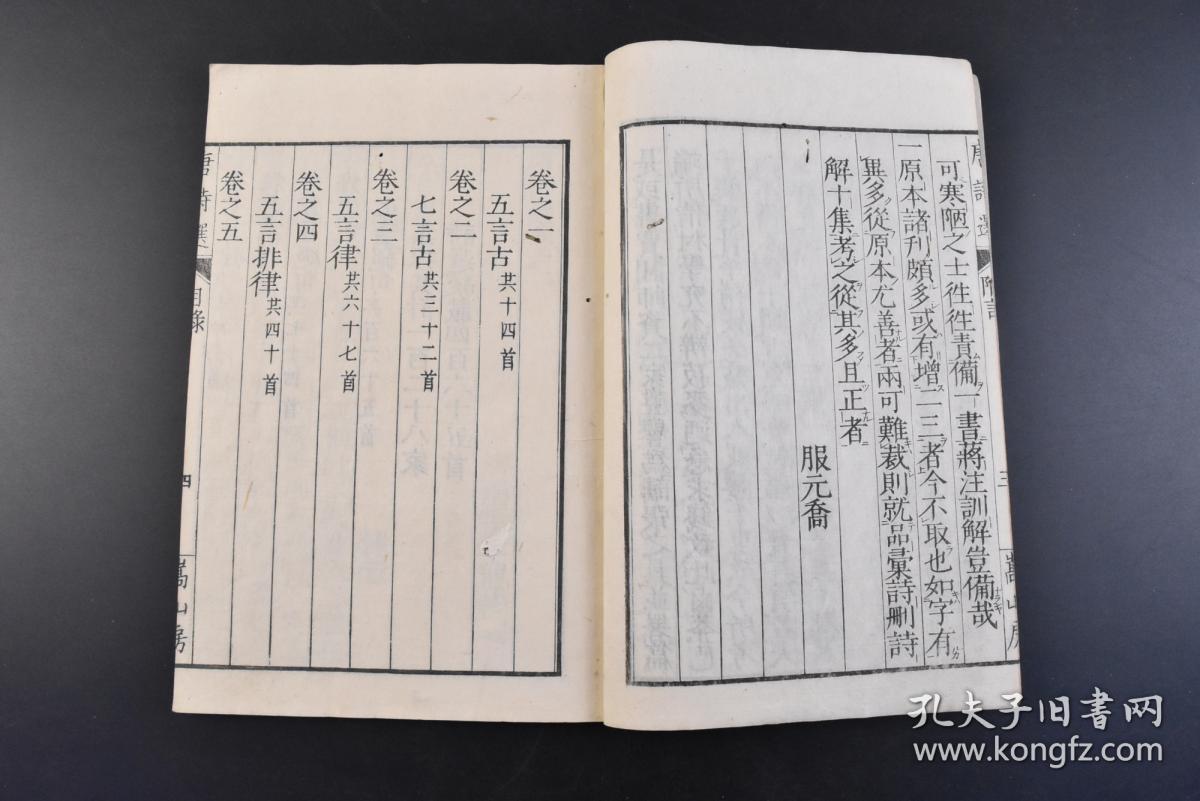 可寒陋之士往往責備一書蔣注訓解豈備哉
一原本諸刊頗多或有增二三者今不取也如字有
異多從原本尤善者兩可難裁則就品彙詩刪詩
解十集考之從其多且正者
服元喬
唐詩選 附言 三 嵩山房
卷之一
五言古 共十四首
卷之二
七言古 共三十二首
卷之三
五言律 共六十七首
卷之四
五言排律 共四十首
卷之五
唐詩選 目錄 四 嵩山房
孔夫子旧書网
www.kongfz.com